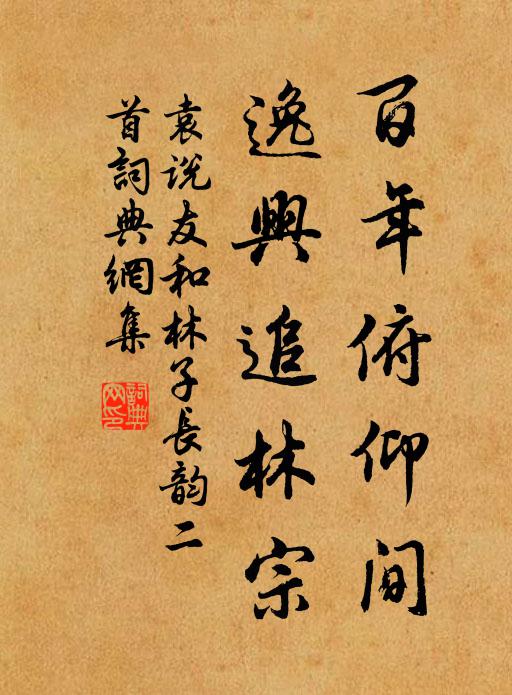 百年俯仰間
逸興追林宗
袁說友和林子長韵二
首詞典網集
詞典
网印